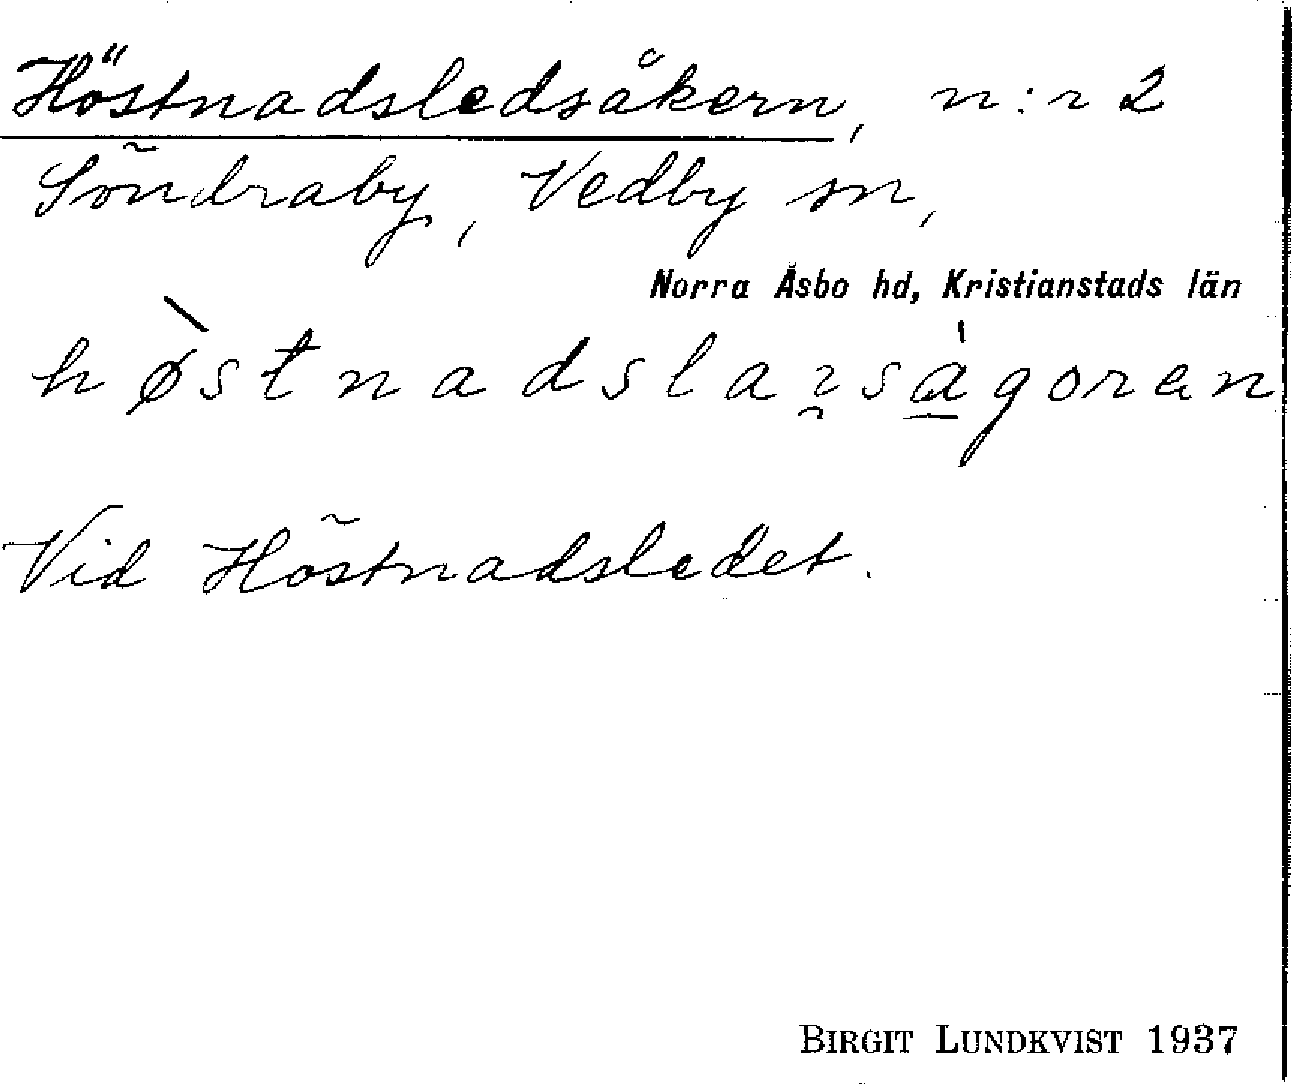 Höstnadsledsåkern, n:r 2
Söndraby, Vedby sn,
Norra Åsbo hd, Kristianstads län
hø̀stnadslaꝛ̯sa̱̍goren
Vid Höstnadsledet.
BIRGIT LUNDKVIST 1937